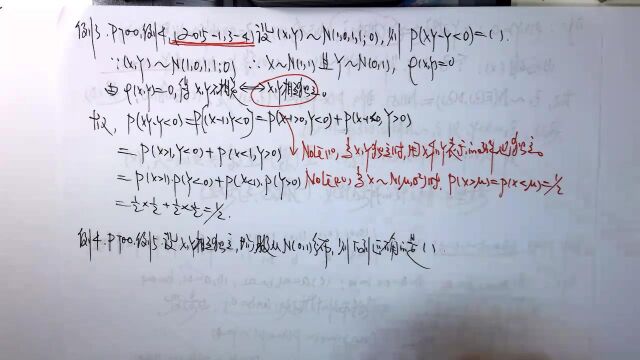 例3. P700.例4. 12-015-1,3-4] 设(X,Y)~N(1,0,1,1;0), 则 P(XY-Y<0)=( ).
∵(X,Y)~N(1,0,1,1;0) ∴X~N(1,1)且Y~N(0,1), ρ(X,Y)=0
由ρ(X,Y)=0, 得X,Y不相关⟷X,Y相互独立。
故, P(XY-Y<0)=P((X-1)Y<0)=P(X-1>0,Y<0)+P(X-1<0,Y>0)
=P(X>1,Y<0)+P(X<1,Y>0) Note: 10, 当X,Y独立时, 用X与Y表示的 也独立。
=P(X>1)·P(Y<0)+P(X<1)·P(Y>0) Note: 20, 当X~N(μ,σ²)时, P(X>μ)=P(X<μ)=1/2
=1/2×1/2+1/2×1/2=1/2.
例4. P700.例5. 设X,Y相互独立, 且 服从N(0,1)分布, 则下列 ( ).